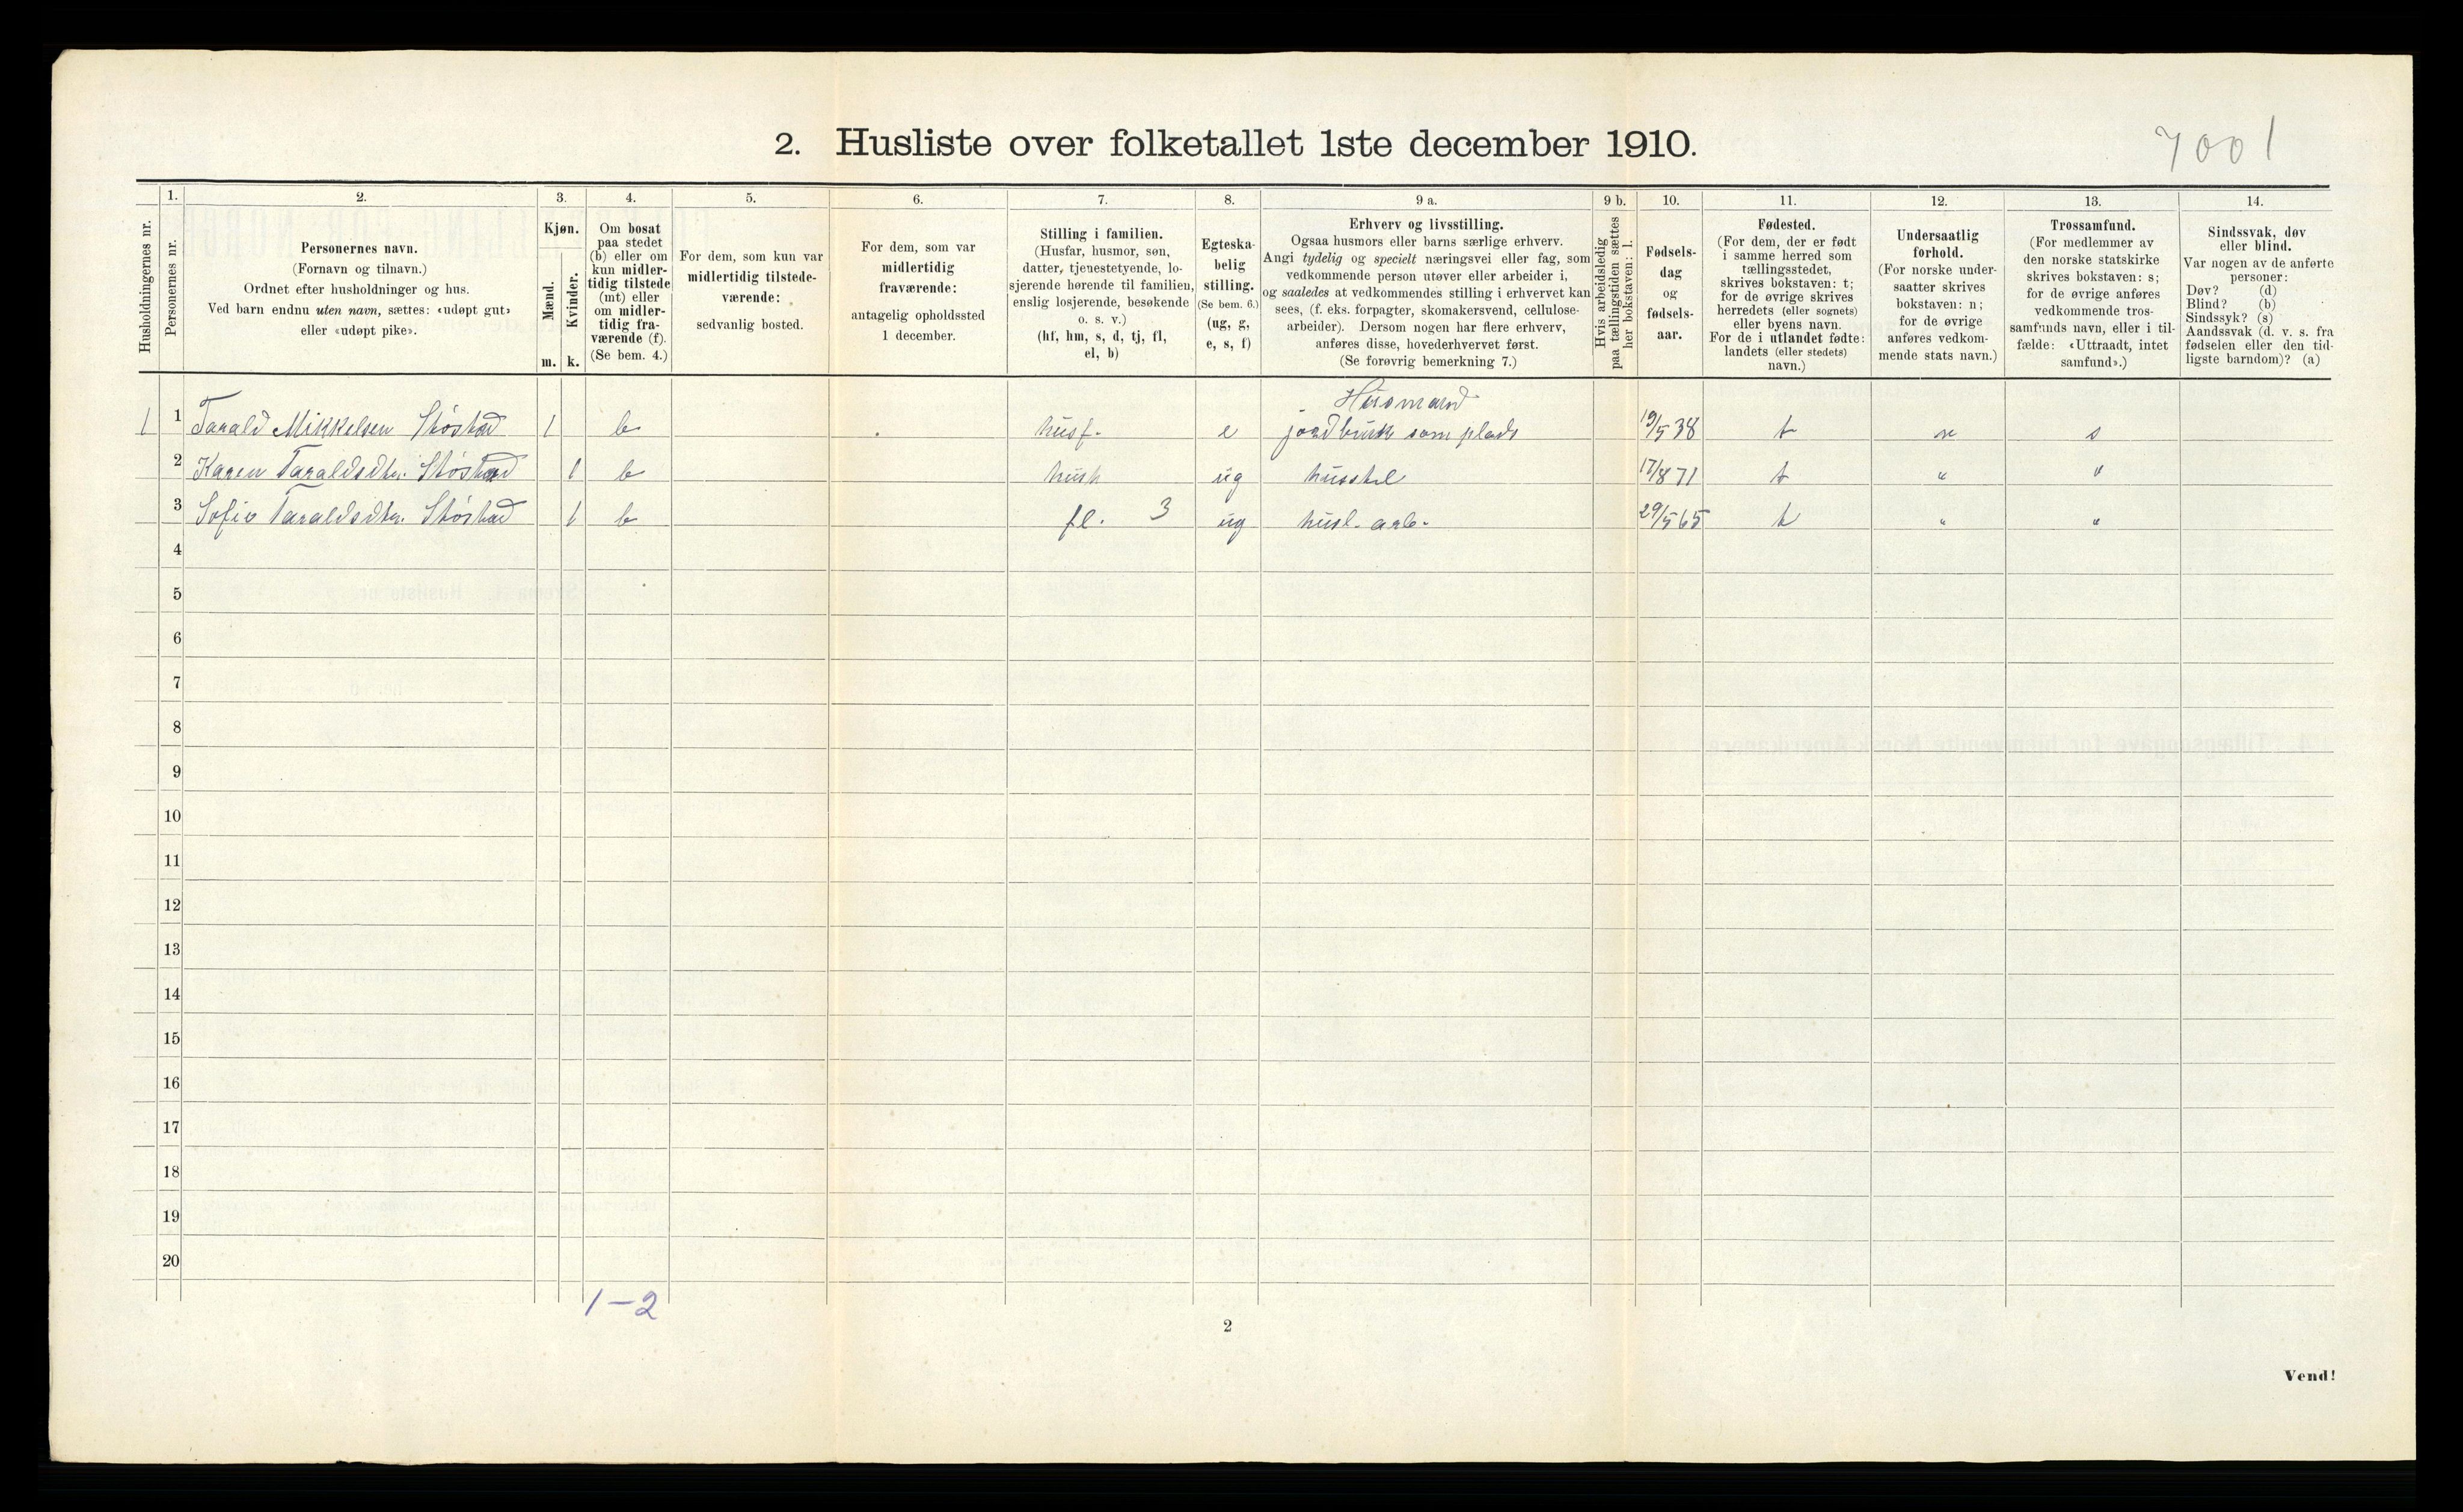 2. Husliste over folketallet 1ste december 1910.
7001
Husholdningernes nr.
1.
Personernes nr.
2.
Personernes navn.
(Fornavn og tilnavn.)
Ordnet efter husholdninger og hus.
Ved barn endnu uten navn, sættes: «udøpt gut»
eller «udøpt pike».
3.
Kjøn.
Mænd.
Kvinder.
m. k.
4.
Om bosat
paa stedet
(b) eller om
kun midler-
tidig tilstede
(mt) eller
om midler-
tidig fra-
værende (f).
(Se bem. 4.)
5.
For dem, som kun var
midlertidig tilstede-
værende:
sedvanlig bosted.
6.
For dem, som var
midlertidig
fraværende:
antagelig opholdssted
1 december.
7.
Stilling i familien.
(Husfar, husmor, søn,
datter, tjenestetyende, lo-
sjerende hørende til familien,
enslig losjerende, besøkende
o. s. v.)
(hf, hm, s, d, tj, fl,
el, b)
8.
Egteska-
belig
stilling.
(Se bem. 6.)
(ug, g,
e, s, f)
9 a.
Erhverv og livsstilling.
Ogsaa husmors eller barns særlige erhverv.
Angi tydelig og specielt næringsvei eller fag, som
vedkommende person utøver eller arbeider i,
og saaledes at vedkommendes stilling i erhvervet kan
sees, (f. eks. forpagter, skomakersvend, cellulose-
arbeider). Dersom nogen har flere erhverv,
anføres disse, hovederhvervet først.
(Se forøvrig bemerkning 7.)
9 b.
Hvis arbeidsledig
paa tællingstiden sættes
her bokstaven: l.
10.
Fødsels-
dag
og
fødsels-
aar.
11.
Fødested.
(For dem, der er født
i samme herred som
tællingsstedet,
skrives bokstaven: t;
for de øvrige skrives
herredets (eller sognets)
eller byens navn.
For de i utlandet fødte:
landets (eller stedets)
navn.)
12.
Undersaatlig
forhold.
(For norske under-
saatter skrives
bokstaven: n;
for de øvrige
anføres vedkom-
mende stats navn.)
13.
Trossamfund.
(For medlemmer av
den norske statskirke
skrives bokstaven: s;
for de øvrige anføres
vedkommende tros-
samfunds navn, eller i til-
fælde: «Uttraadt, intet
samfund».)
14.
Sindssvak, døv
eller blind.
Var nogen av de anførte
personer:
Døv? (d)
Blind? (b)
Sindssyk? (s)
Aandssvak (d. v. s. fra
fødselen eller den tid-
ligste barndom)? (a)
Husmand
1 1 Tarald Mikkelsen Stöstad 1 b husf. e jordbruk som plads 19/5 38 t n s
2 Karen Taraldsdtr. Stöstad 1 b hush ug husstel 17/8 71 t " "
3 Sofie Taraldsdtr. Stöstad 1 b fl. 3 ug husl. arb. 29/5 65 t " "
4
5
6
7
8
9
10
11
12
13
14
15
16
17
18
19
20
1-2
2
Vend!